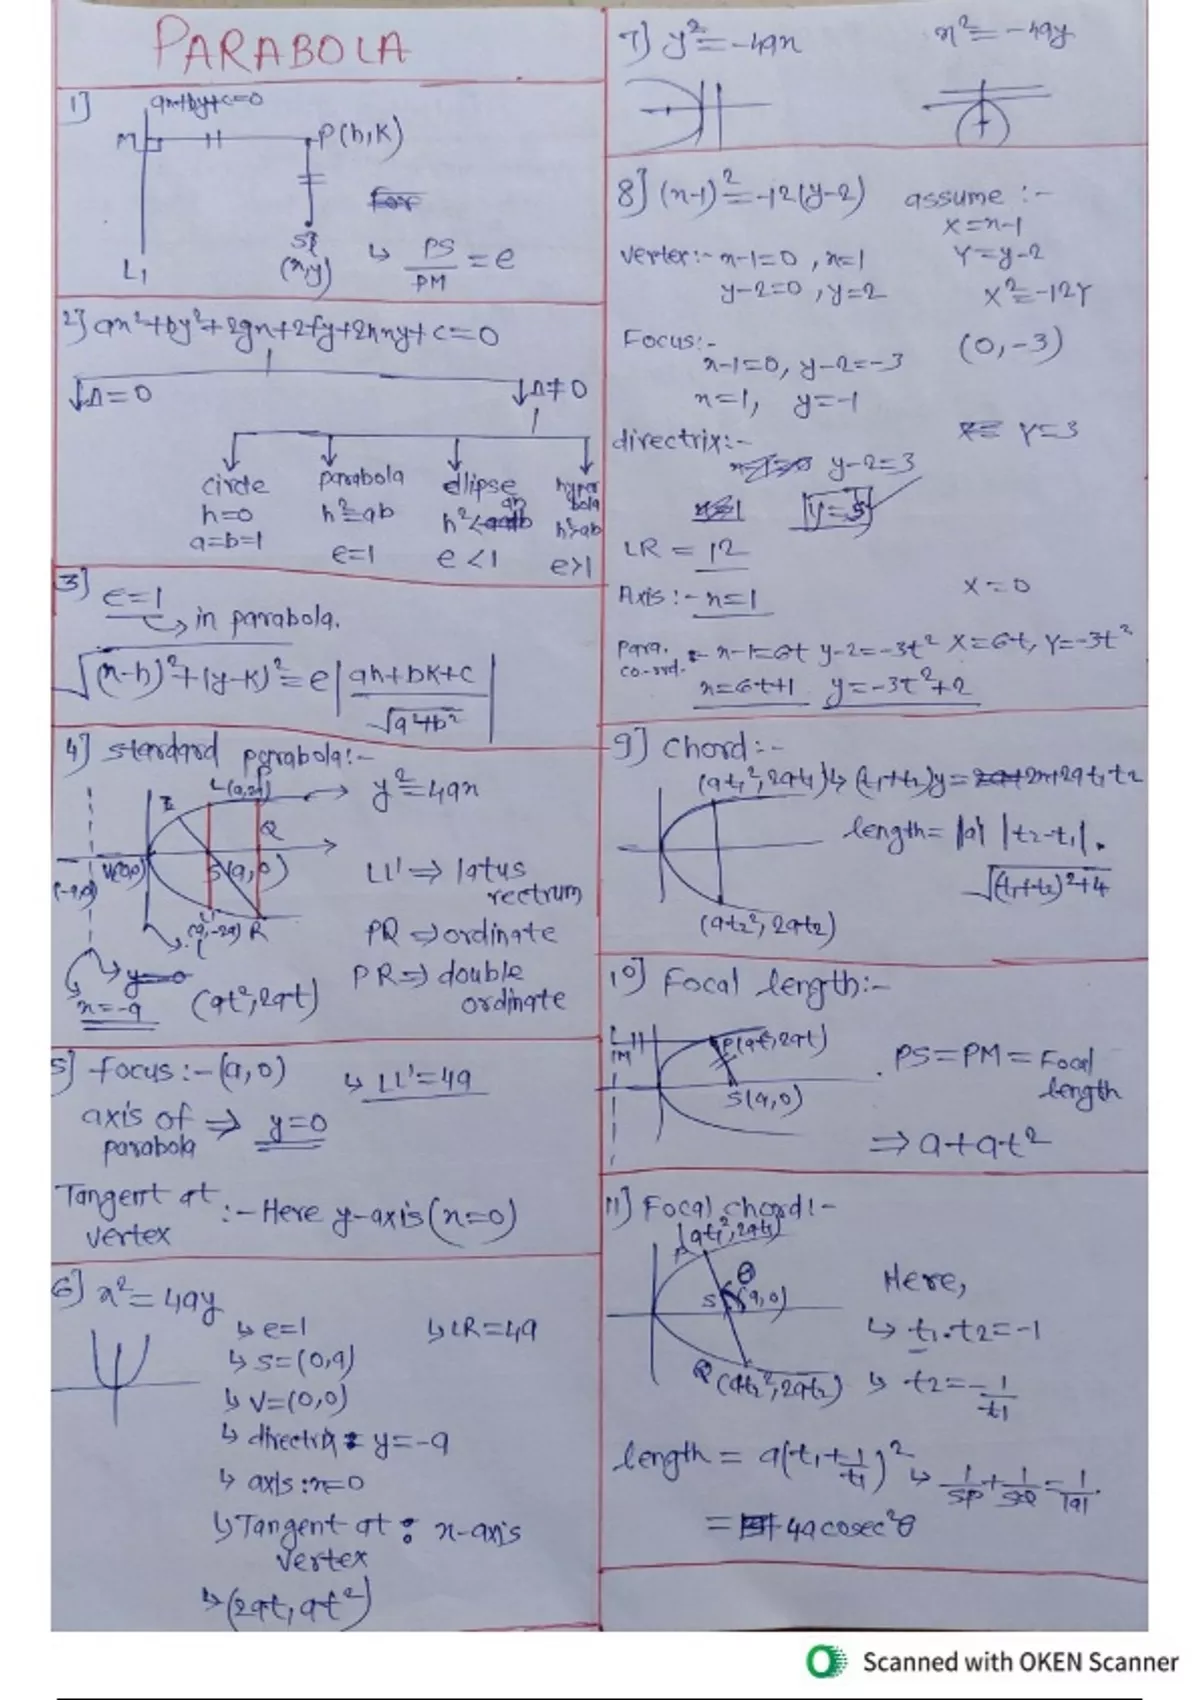 PARABOLA
1]
ax+by+c=0
M
P(h,K)
for
S
(x,y)
L1
↳ PS/PM = e
2] ax²+by²+2gx+2fy+2hxy+c=0
↓Δ=0
↓Δ≠0
circle
h=0
a=b=1
parabola
h²=ab
e=1
ellipse
h²<ab
e<1
hyper
bola
h²>ab
e>1
3] e=1
↳ in parabola.
√(x-h)²+(y-k)² = e |ah+bK+c / √a²+b²|
4] standard parabola:-
L(a,2a)
P
→ y²=4ax
Q
V(0,0)
S(a,0)
(-a,0)
L'
(a,-2a)
R
LL' ⇒ latus
rectum
PQ ⇒ ordinate
PR ⇒ double
ordinate
y=0
x=-a
(at²,2at)
5] focus:-(a,0)
↳ LL'=4a
axis of ⇒ y=0
parabola
Tangent at :- Here y-axis(x=0)
vertex
6] x²=4ay
↳ e=1
↳ LR=4a
↳ S=(0,a)
↳ V=(0,0)
↳ directrix : y=-a
↳ axis:x=0
↳ Tangent at : x-axis
vertex
↳ (2at, at²)
7] y²=-4ax
x²=-4ay
8] (x-1)²=-12(y-2)
assume :-
X=x-1
vertex:- x-1=0, x=1
Y=y-2
y-2=0, y=2
X²=-12Y
Focus:-
(0,-3)
x-1=0, y-2=-3
x=1, y=-1
directrix:-
Y=3
y-2=3
y=5
LR = 12
Axis:- x=1
X=0
Para. :- x-1=6t y-2=-3t² X=6t, Y=-3t²
co-ord.
x=6t+1 y=-3t²+2
9] chord:-
(at1², 2at1) ↳ (t1+t2)y=2x+2at1t2
length= |a| |t2-t1| .
√(t1+t2)²+4
(at2², 2at2)
10] Focal length:-
P(at²,2at)
M
S(a,0)
PS=PM=Focal
length
⇒ a+at²
11] Focal chord:-
P(at1²,2at1)
θ
S(a,0)
Q(at2²,2at2)
Here,
↳ t1.t2=-1
↳ t2=-1/t1
length = a(t1+1/t1)² ↳ 1/SP+1/SQ=1/|a|.
= 4acosec²θ
Scanned with OKEN Scanner